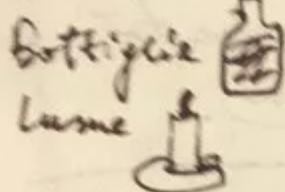 bottiglia
lume